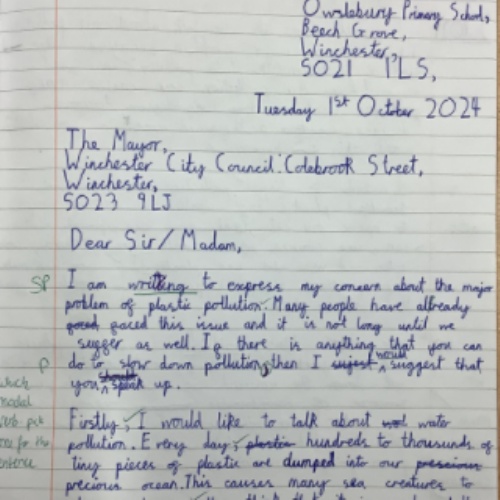 Owslebury Primary School,
Beech Grove,
Winchester,
SO21 1LS,
Tuesday 1st October 2024
The Mayor,
Winchester City Council. Colebrook Street,
Winchester,
SO23 9LJ
Dear Sir/Madam,
SP
I am writting to express my concern about the major
problem of plastic pollution. Many people have allready
faced this issue and it is not long until we
suffer as well. If there is anything that you can
P
do to slow down pollution, then I would suggest that
you speak up.
which
modal
verb
for the
sentence
Firstly, I would like to talk about water
pollution. Every day, plastic hundreds to thousands of
tiny pieces of plastic are dumped into our precious
precious ocean. This causes many sea creatures to